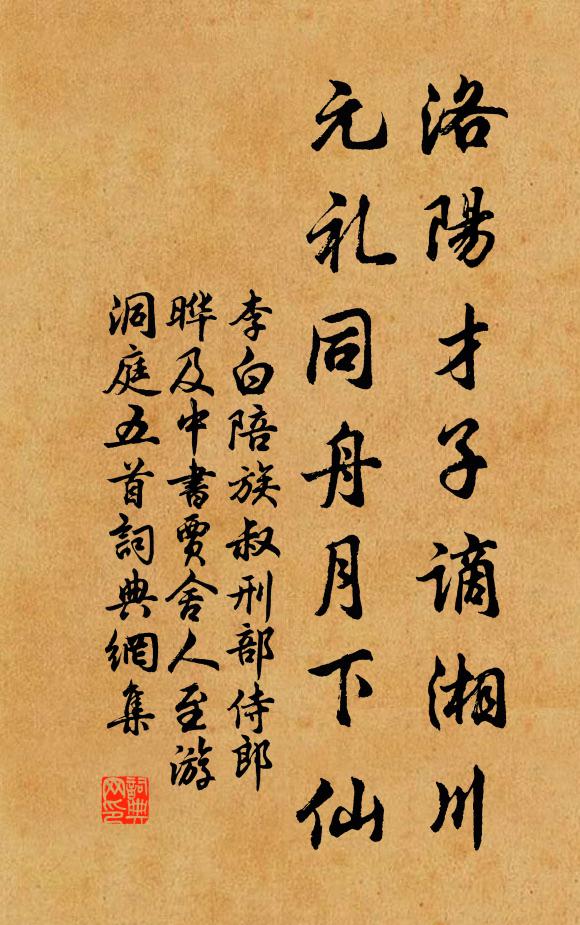 洛陽才子謫湘川
元礼同舟月下仙
李白陪族叔刑部侍郎
晔及中書賈舍人至游
洞庭五首詞典網集
詞典
网印